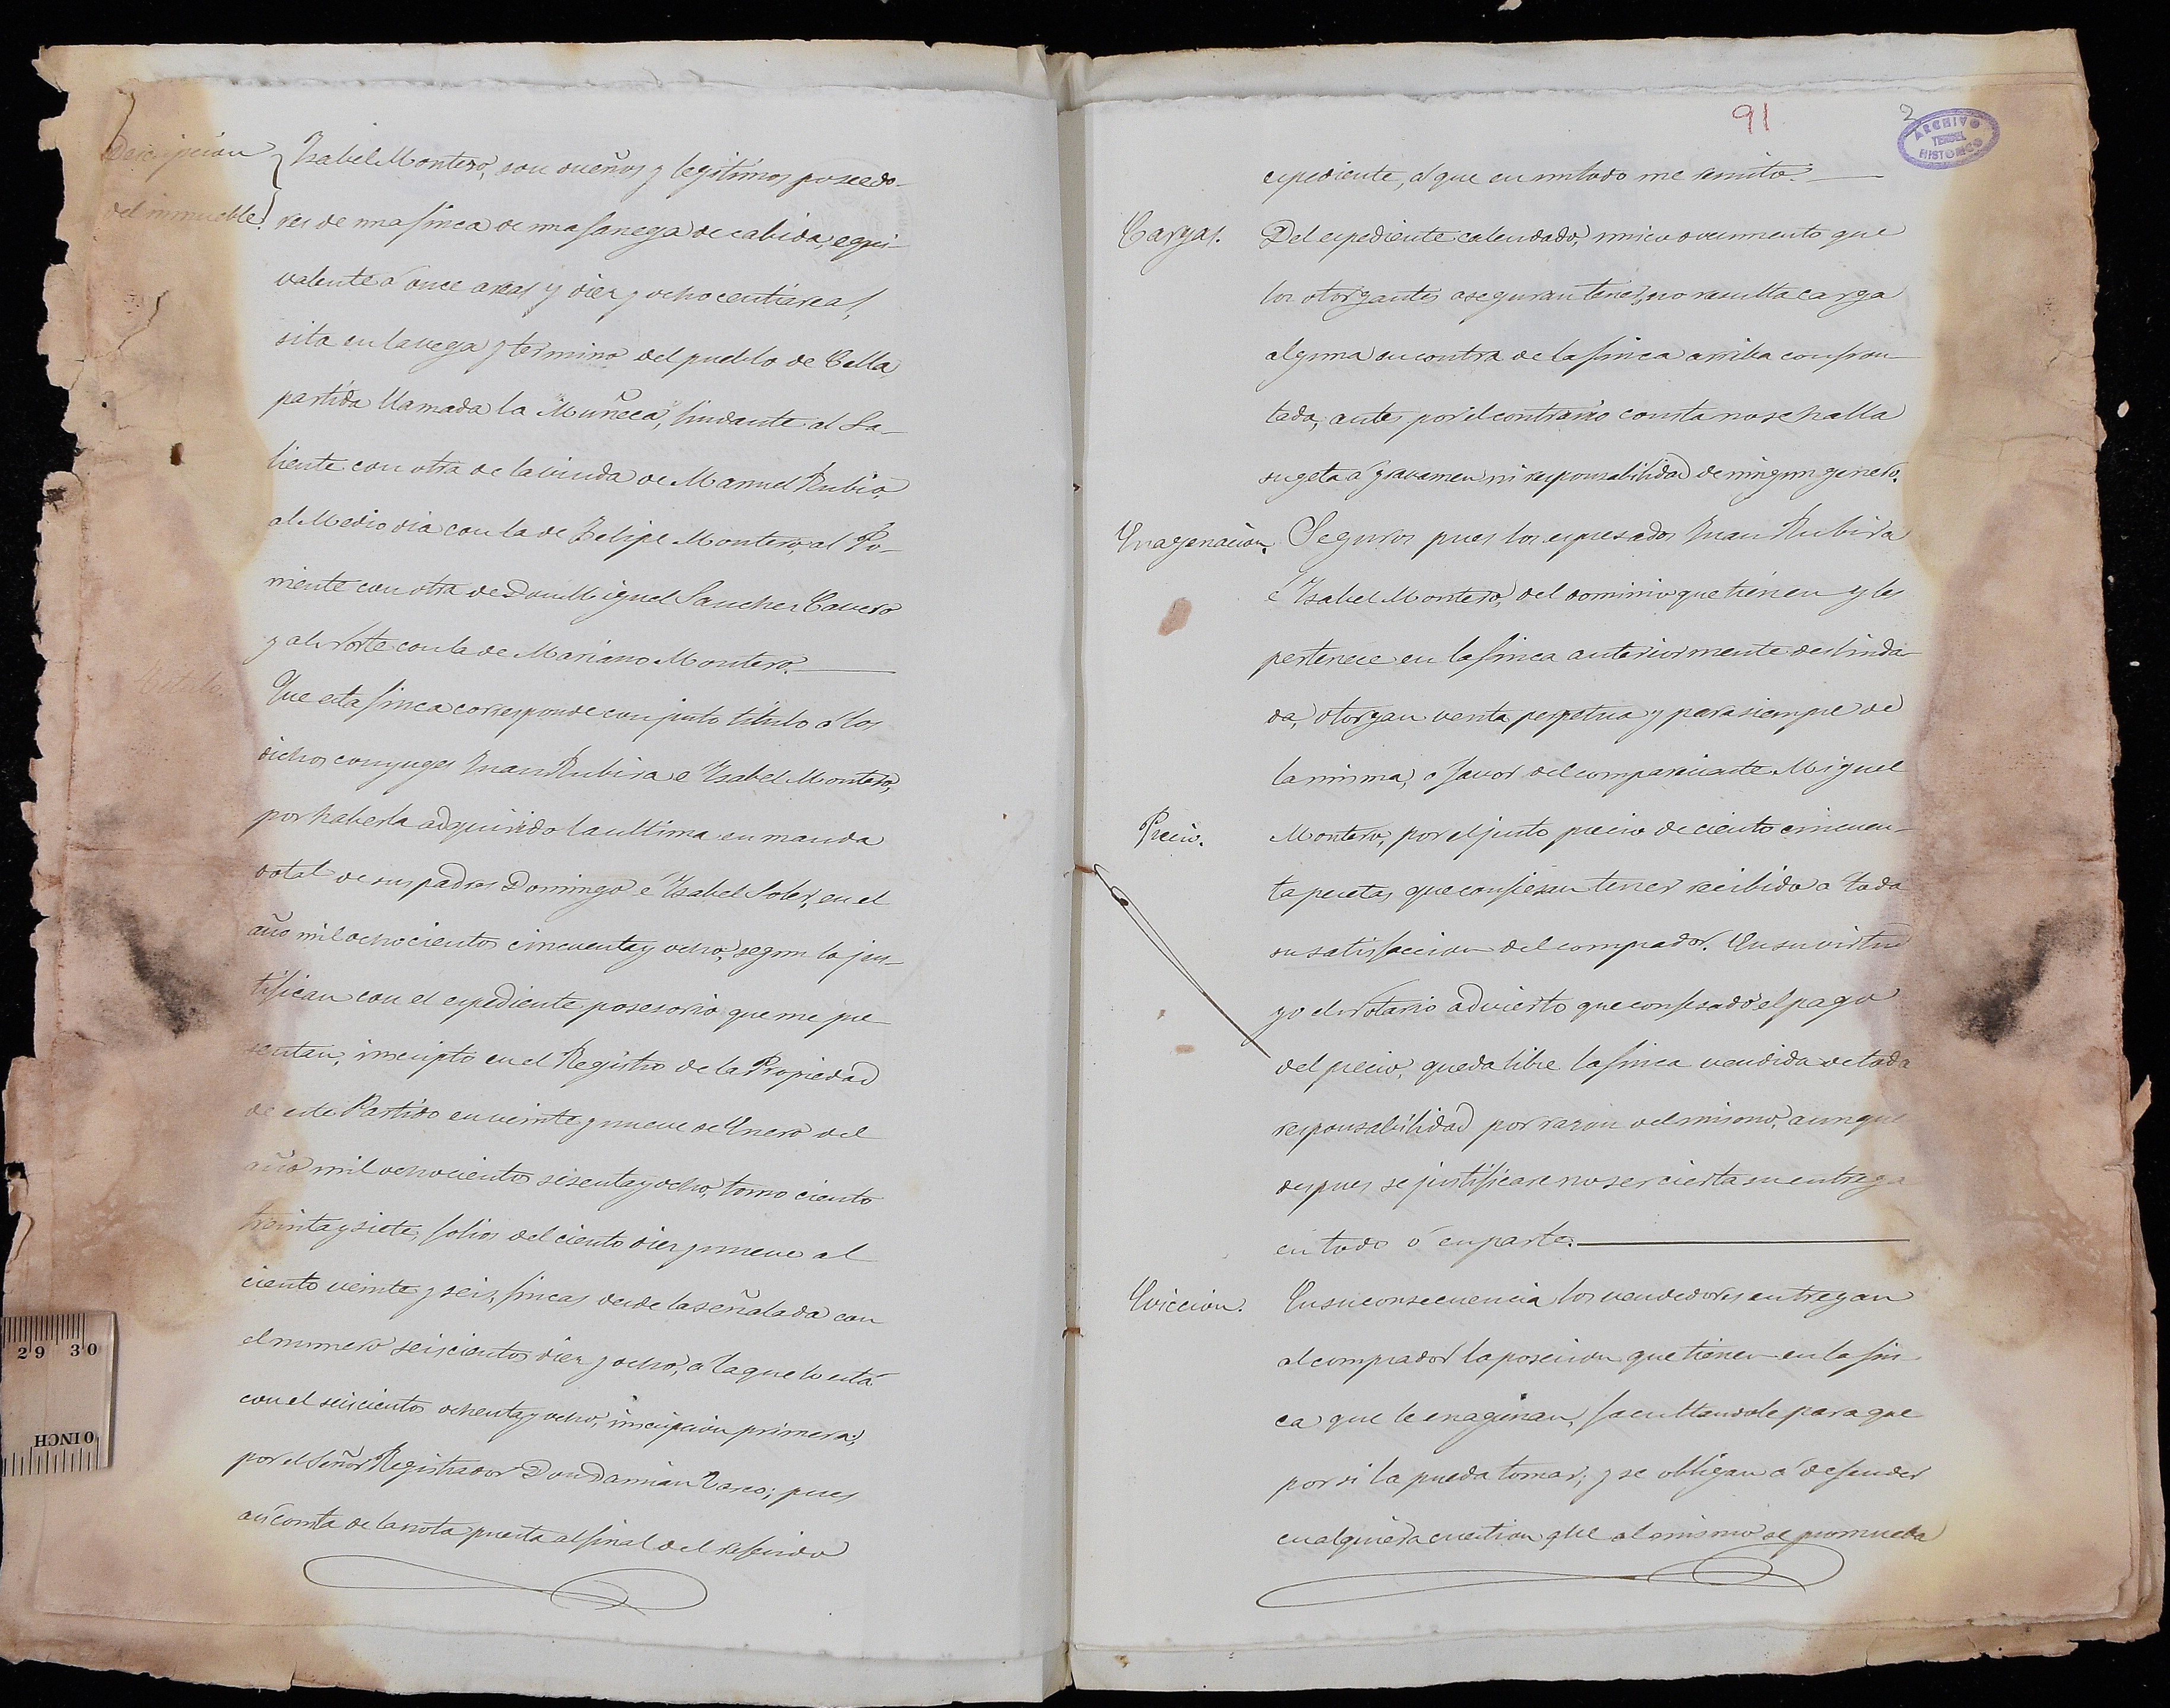 Descripcion
del inmueble.
Isabel Montero, son dueños y legitimos poseedo-
res de una finca de una fanega de cabida, equi-
valente á once areas y diez y ocho centiareas,
sita en la vega y termino del pueblo de Cella,
partida llamada la Muñeca, lindante al Sa-
liente con otra de la viuda de Manuel Rubio,
al Medio dia con la de Felipe Montero, al Po-
niente con otra de Don Miguel Sanchez Cavero
y al Norte con la de Mariano Montero.
Titulo.
Que esta finca corresponde con justo titulo á los
dichos conyuges Juan Rubira e Isabel Montero,
por haberla adquirido la ultima en manda
dotal de sus padres Domingo é Isabel Soler, en el
año mil ochocientos cincuenta y ocho, segun lo jus-
tifican con el espediente posesorio que me pre
sentan, inscripto en el Registro de la Propiedad
de este Partido en veinte y nueve de Enero del
año mil ochocientos sesenta y ocho, tomo ciento
treinta y siete, folios del ciento diez y nueve al
ciento veinte y seis, fincas desde la señalada con
el numero seiscientos diez y ocho, á la que lo está
con el seiscientos ochenta y ocho, inscripcion primera;
por el Señor Registrador Don Damian Vasco; pues
asi consta de la nota puesta al final del referido
91
2
ARCHIVO
HISTORICO
TERUEL
espediente, al que en un todo me remito.
Cargas.
Del espediente calendado, unico documento que
los otorgantes aseguran tener, no resulta carga
alguna en contra de la finca arriba confron-
tada, antes por el contrario consta no se halla
sugeta á gravamen ni responsabilidad de ningun genero.
Enagenacion.
Seguros pues los espresados Juan Rubira
é Isabel Montero, del dominio que tienen y les
pertenece en la finca anteriormente deslinda
da, otorgan venta perpetua y para siempre de
la misma, á favor del compareciente Miguel
Precio.
Montero, por el justo precio de ciento cincuen-
ta pesetas, que confiesan tener recibido a toda
su satisfaccion del comprador. En su virtud
yo el Notario advierto que confesado el pago
del precio, queda libre la finca vendida de toda
responsabilidad por razon del mismo, aunque
despues se justificare no ser cierta su entrega
en todo ó en parte.
Eviccion.
En su consecuencia los vendedores entregan
al comprador la posesion que tienen en la fin
ca que le enagenan, facultandole para que
por si la pueda tomar; y se obligan á defender
cualquiera cuestion que al mismo se promueba
29 30
0 INCH